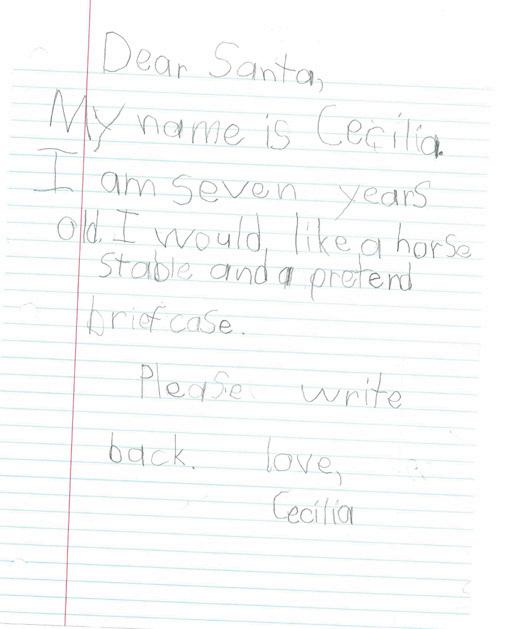 Dear Santa,
My name is Cecilia.
I am seven years
old. I would like a horse
stable and a pretend
briefcase.
Please write
back. love,
Cecilia